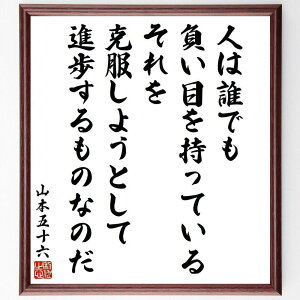 人は誰でも
負い目を持っている
それを
克服しようとして
進歩するものなのだ
山本五十六